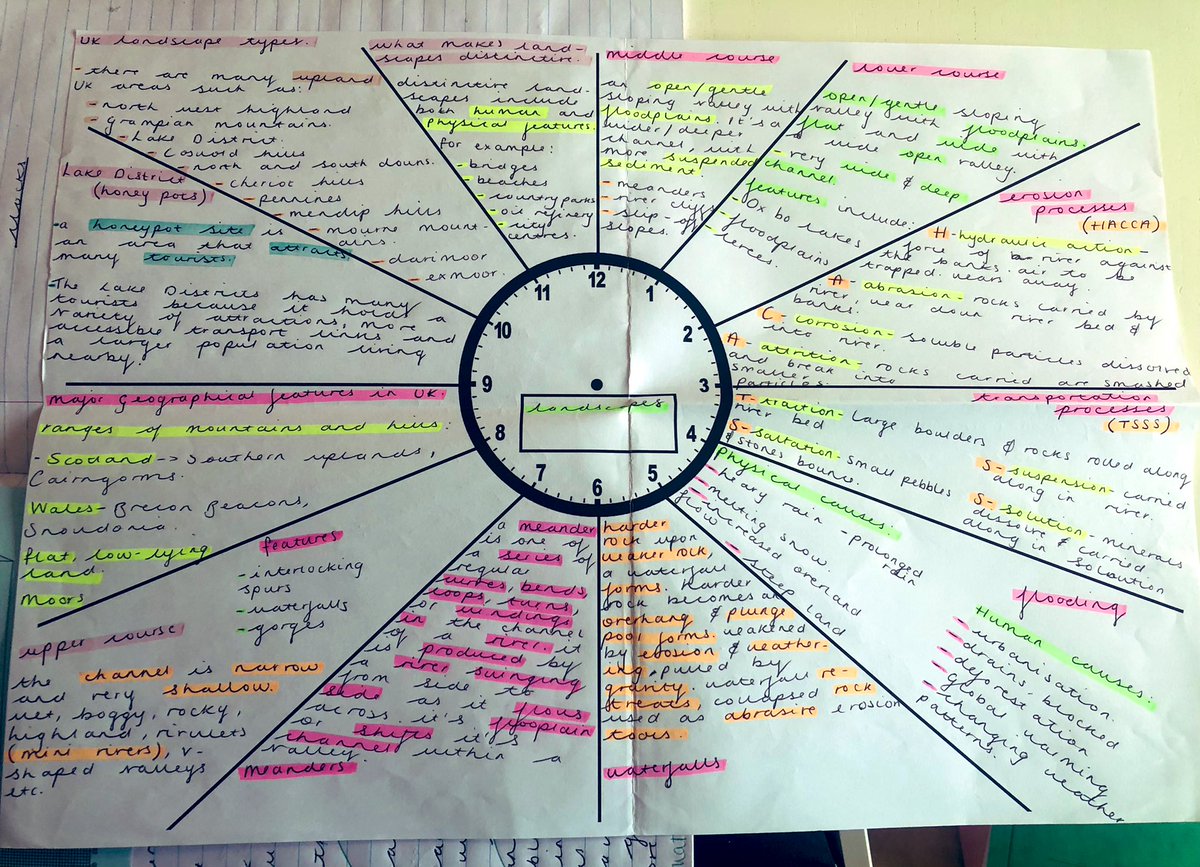 UK landscape types.
- there are many upland
UK areas such as:
- north west highland
- grampian mountains.
- Lake District.
- Coswold hills
- north and south downs.
- cheviot hills
- pennines
- mendip hills
- mourne mount-
ains.
- dartmoor
- exmoor.
what makes land-
scapes distinctive.
distinctive land-
scapes include
both human and
physical features.
for example:
- bridges
- beaches
- country parks
- oil refinery
- city
centres.
middle course
an open/gentle
sloping valley with
floodplains. it's a
wider/deeper
channel, with
more suspended
sediment
- meanders
- river cliffs
- slip-off
slopes.
lower course
open/gentle sloping
valley with floodplains.
flat and wide with
a wide open valley.
- very wide & deep
channel
features include:
- Ox bo lakes
- floodplains
- levees.
erosion
processes
(HACCA)
H- hydraulic action-
force of river against
the banks. air to be
trapped. wears away.
A- abrasion- rocks carried by
river, wear down river bed &
banks.
C- corrosion- soluble particles dissolved
into river.
A- attrition- rocks carried are smashed
and break into
smaller
particles.
transportation
processes
(TSSS)
T- traction- large boulders & rocks rolled along
river bed
S- saltation- small pebbles
& stones bounce.
S- suspension- carried
along in river.
S- solution- minerals
dissolve & carried
along in soloution
flooding
Physical causes:
- heavy rain - prolonged
rain
- melting snow.
- increased overland
flow
- steep land
Human causes:
- urbanisation.
- drains blocked
- deforestation
- global warming
- changing weather
patterns.
harder
rock upon
weaker rock,
a waterfall
forms. harder
rock becomes an
overhang & plunge
pool forms. weakened
by erosion & weather-
ing, pulled by
gravity, waterfall re-
treats. collapsed rock
used as abrasive erosion
tools.
waterfalls
a meander
is one of
a series of
regular
curves, bends,
loops, turns,
or windings
in the channel
of a river. it
is produced by
a river swinging
from side to
side as it flows
across it's floodplain
or shifts it's
channel within a
valley.
meanders.
upper course
the channel is narrow
and very shallow.
wet, boggy, rocky,
highland, rivulets
(mini rivers), v-
shaped valleys
etc.
features
- interlocking
spurs
- waterfalls
- gorges
major geographical features in UK.
ranges of mountains and hills:
- Scotland -> Southern uplands,
Cairngorms.
Wales- Brecon Beacons,
Snowdonia.
flat, low-lying
land
Moors
Lake District
(honey pots)
- a honeypot site is
an area that attracts
many tourists.
- The Lake Districts has many
tourists because it holds a
variety of attractions, more
accessible transport links and
a larger population living
nearby.
12
1
2
3
4
5
6
7
8
9
10
11
landscapes